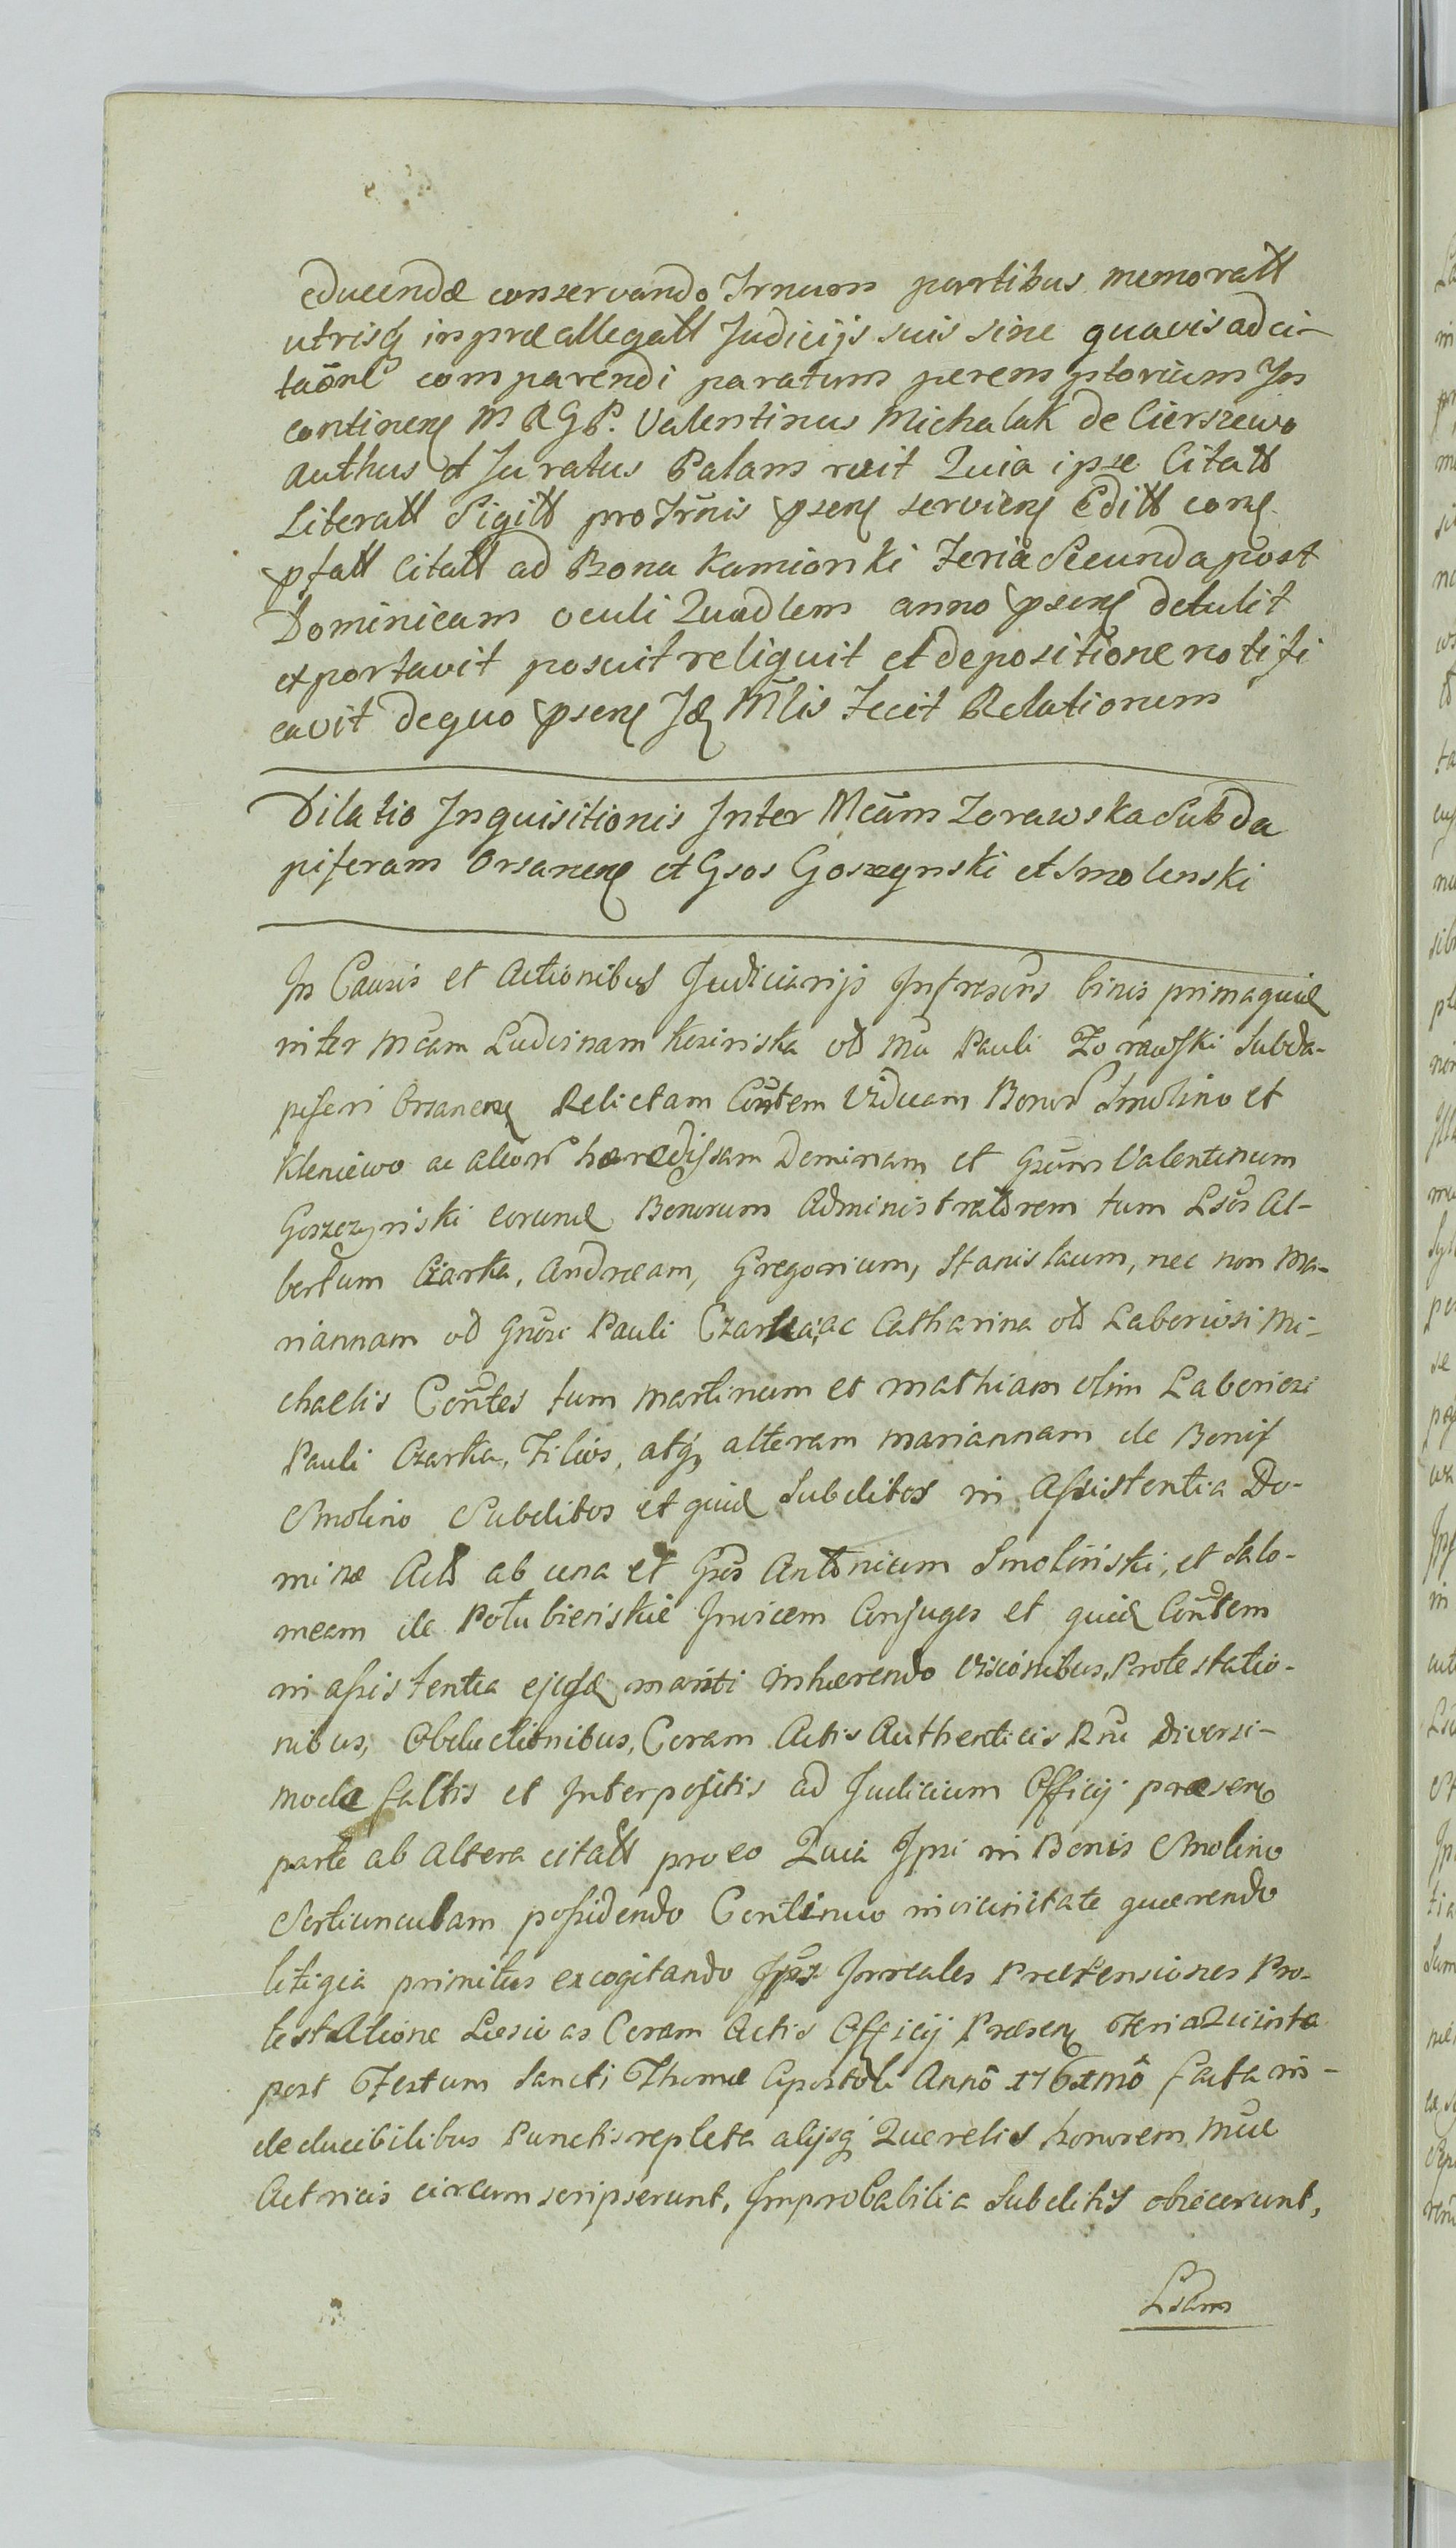 educendæ conservando Trnum partibus memoratt
utrisq in præallegatt Judicijs suis sine quavis adci-
taōne comparendi paratum peremptorium In
continen M R G P. Valentinus Michalak de Cierszewo
authus et Juratus Palam r̄cit Quia ipse Citatt
Literatt Sigitt pro Tr̄nis psen servien Editt con
pfatt Citatt ad Bona Kamionki Feria Secunda post
Dominicam oculi Quadlem anno psen detulit
exportavit posuit reliquit et depositione notifi
cavit de quo psen Jd M̄lis Fecit Relationem
Dilatio Inquisitionis Inter Mcām Zorawska Subda
piferam Orsanen et Gsos Goszzynski et Smolenski
In Causis et Actionibus Judiciarijs Infrascrs binis prima quid
inter Mcam Ludvinam Kozinska olt Mci Pauli Zorawski Subda-
piferi Orsanen Relictam Con̄tem Viduam Bonor Smolino et
Kleniewo ac alior hæredissam Dominam et Gsum Valentinum
Goszczynski eorund Bonorum Administratorem tum Lsos Al-
bertum Czarka, Andræam, Gregorium, Stanislaum, nec non Ma-
riannam olt Gnosi Pauli Czarka, ac Catharina olt Laboriosi Mi-
chaelis Con̄tes tum Martinum et Mathiam olim Laboriosi
Pauli Czarka, Filios, atq, alteram Mariannam de Bonis
Smolino Subditos et quid Subditos in Assistentia Do-
minæ Act ab una et Gsos Antonium Smolinski, et Salo-
meam de Potubienskie Invicem Conjuges et quid Con̄tem
in assistentia ejusd mariti inhærendo Visionibus, Protestatio-
nibus, Obductionibus, Coram Actis Authenticis Rñi Diversi-
mode factis et Interpositis ad Judicium Officij præsen
parte ab altera citatt pro eo Quia Ipsi in Bonis Smolino
Sortiunculam possidendo Continuo in vicinitate quærendo
litigia primitus excogitando Ipsi Irreales Prætensiones Pro-
testatione Læsivas Coram Actis Officij Præsen Feria Quinta
post Festum Sancti Thomæ Apostoli Annō 1761mō facta in-
deducibilibus Punctis repleta alijsq Querelis honorem Mcæ
Actricis circumscripserunt, Improbabilia Subditis obiecerunt,
Lsam